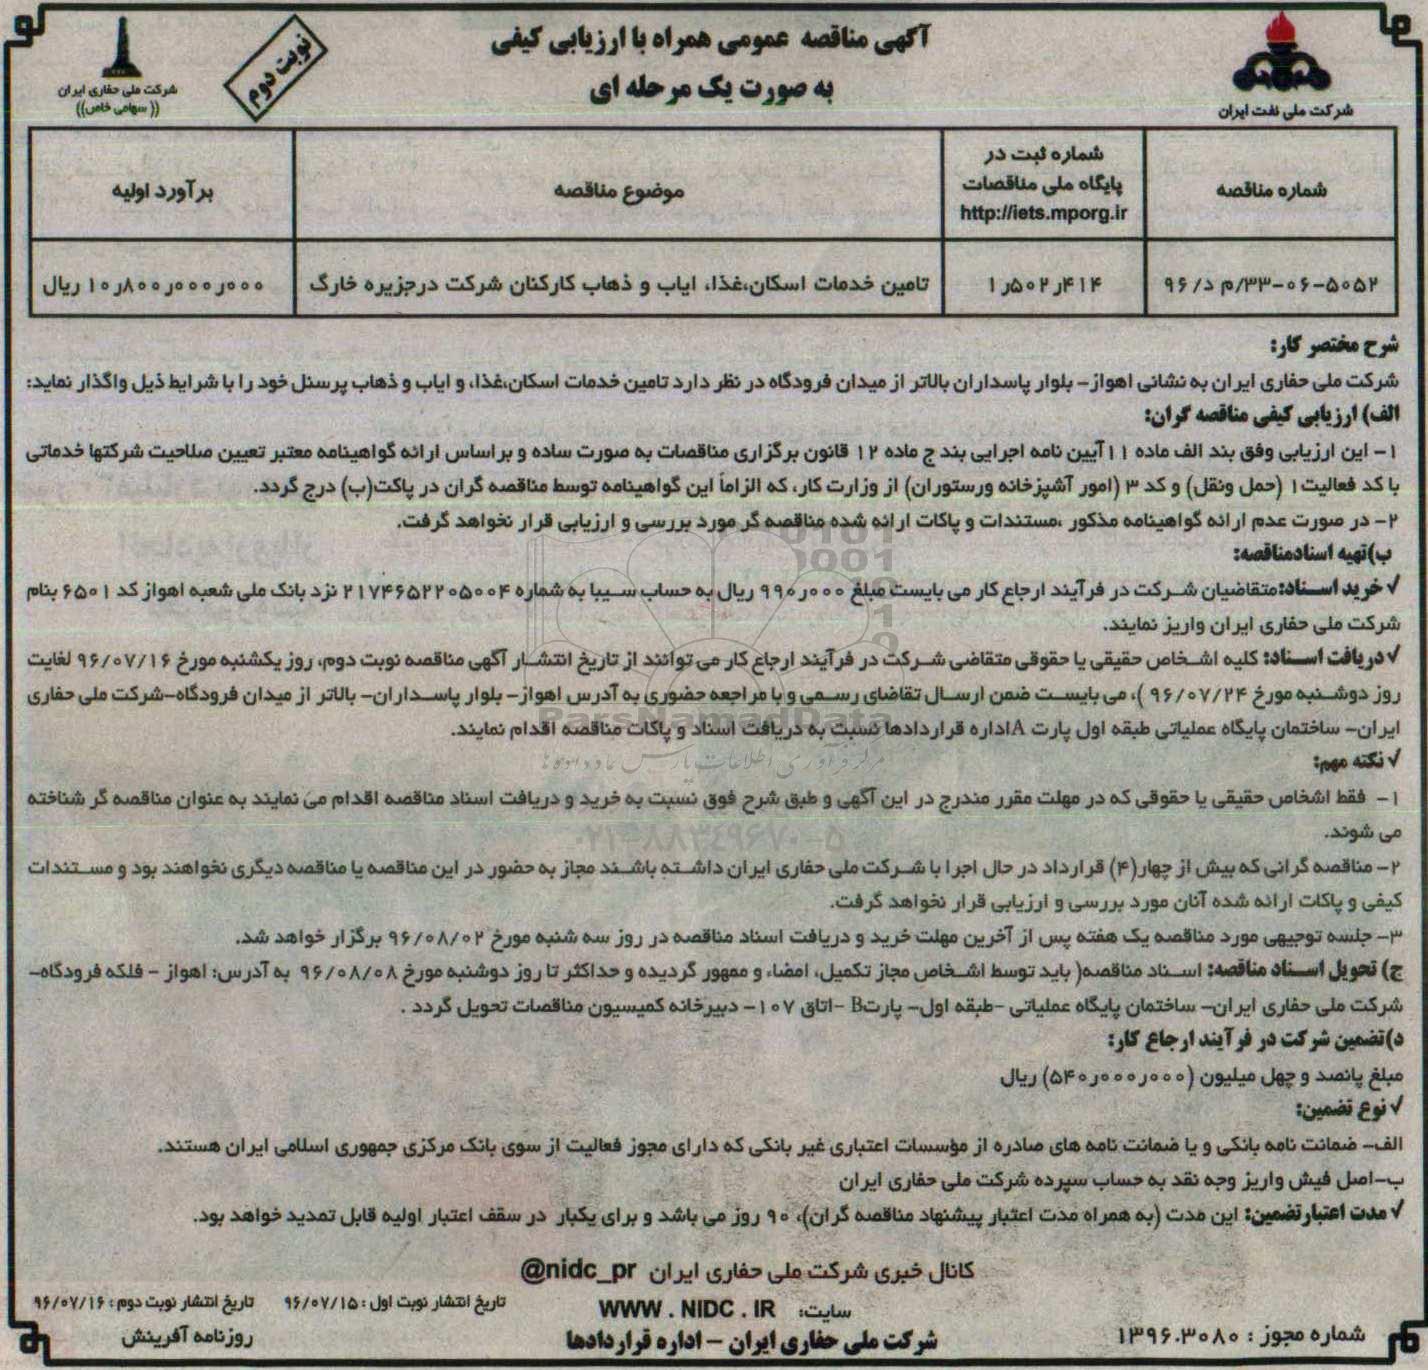 آگهی مناقصه عمومی همراه با ارزیابی کیفی
به صورت یک مرحله ای
شرکت ملی نفت ایران
نوبت دوم
شرکت ملی حفاری ایران
((سهامی خاص))
شماره مناقصه
شماره ثبت در
پایگاه ملی مناقصات
http://iets.mporg.ir
موضوع مناقصه
برآورد اولیه
۳۳-۰۶-۵۰۵۲/م د/۹۶
۱ر۵۰۲ر۴۱۴
تامین خدمات اسکان،غذا، ایاب و ذهاب کارکنان شرکت درجزیره خارگ
۱۰ر۸۰۰ر۰۰۰ر۰۰۰ ریال
شرح مختصر کار:
شرکت ملی حفاری ایران به نشانی اهواز- بلوار پاسداران بالاتر از میدان فرودگاه در نظر دارد تامین خدمات اسکان،غذا، و ایاب و ذهاب پرسنل خود را با شرایط ذیل واگذار نماید:
الف) ارزیابی کیفی مناقصه گران:
۱- این ارزیابی وفق بند الف ماده ۱۱آیین نامه اجرایی بند ج ماده ۱۲ قانون برگزاری مناقصات به صورت ساده و براساس ارائه گواهینامه معتبر تعیین صلاحیت شرکتها خدماتی
با کد فعالیت۱ (حمل ونقل) و کد ۳ (امور آشپزخانه ورستوران) از وزارت کار، که الزاماً این گواهینامه توسط مناقصه گران در پاکت(ب) درج گردد.
۲- در صورت عدم ارائه گواهینامه مذکور ،مستندات و پاکات ارائه شده مناقصه گر مورد بررسی و ارزیابی قرار نخواهد گرفت.
ب)تهیه اسنادمناقصه:
√ خرید اسناد:متقاضیان شرکت در فرآیند ارجاع کار می بایست مبلغ ۹۹۰ر۰۰۰ ریال به حساب سیبا به شماره ۲۱۷۴۶۵۲۲۰۵۰۰۴ نزد بانک ملی شعبه اهواز کد ۶۵۰۱ بنام
شرکت ملی حفاری ایران واریز نمایند.
√ دریافت اسناد: کلیه اشخاص حقیقی یا حقوقی متقاضی شرکت در فرآیند ارجاع کار می توانند از تاریخ انتشار آگهی مناقصه نوبت دوم، روز یکشنبه مورخ ۹۶/۰۷/۱۶ لغایت
روز دوشنبه مورخ ۹۶/۰۷/۲۴ )، می بایست ضمن ارسال تقاضای رسمی و با مراجعه حضوری به آدرس اهواز- بلوار پاسداران- بالاتر از میدان فرودگاه-شرکت ملی حفاری
ایران- ساختمان پایگاه عملیاتی طبقه اول پارت Aاداره قراردادها نسبت به دریافت اسناد و پاکات مناقصه اقدام نمایند.
√ نکته مهم:
۱- فقط اشخاص حقیقی یا حقوقی که در مهلت مقرر مندرج در این آگهی و طبق شرح فوق نسبت به خرید و دریافت اسناد مناقصه اقدام می نمایند به عنوان مناقصه گر شناخته
می شوند.
۲- مناقصه گرانی که بیش از چهار(۴) قرارداد در حال اجرا با شرکت ملی حفاری ایران داشته باشند مجاز به حضور در این مناقصه یا مناقصه دیگری نخواهند بود و مستندات
کیفی و پاکات ارائه شده آنان مورد بررسی و ارزیابی قرار نخواهد گرفت.
۳- جلسه توجیهی مورد مناقصه یک هفته پس از آخرین مهلت خرید و دریافت اسناد مناقصه در روز سه شنبه مورخ ۹۶/۰۸/۰۲ برگزار خواهد شد.
ج) تحویل اسناد مناقصه: اسناد مناقصه( باید توسط اشخاص مجاز تکمیل، امضاء و ممهور گردیده و حداکثر تا روز دوشنبه مورخ ۹۶/۰۸/۰۸ به آدرس: اهواز - فلکه فرودگاه-
شرکت ملی حفاری ایران- ساختمان پایگاه عملیاتی -طبقه اول- پارتB -اتاق ۱۰۷- دبیرخانه کمیسیون مناقصات تحویل گردد .
د)تضمین شرکت در فرآیند ارجاع کار:
مبلغ پانصد و چهل میلیون (۵۴۰ر۰۰۰ر۰۰۰) ریال
√ نوع تضمین:
الف- ضمانت نامه بانکی و یا ضمانت نامه های صادره از مؤسسات اعتباری غیر بانکی که دارای مجوز فعالیت از سوی بانک مرکزی جمهوری اسلامی ایران هستند.
ب-اصل فیش واریز وجه نقد به حساب سپرده شرکت ملی حفاری ایران
√ مدت اعتبارتضمین: این مدت (به همراه مدت اعتبار پیشنهاد مناقصه گران)، ۹۰ روز می باشد و برای یکبار در سقف اعتبار اولیه قابل تمدید خواهد بود.
کانال خبری شرکت ملی حفاری ایران @nidc_pr
سایت: WWW . NIDC . IR
شرکت ملی حفاری ایران - اداره قراردادها
شماره مجوز : ۱۳۹۶.۳۰۸۰
تاریخ انتشار نوبت اول : ۹۶/۰۷/۱۵
تاریخ انتشار نوبت دوم : ۹۶/۰۷/۱۶
روزنامه آفرینش
ParsNamadData
مرکز فرآوری اطلاعات پارس نماد داده ها
۰۲۱-۸۸۳۴۹۶۷۰-۵